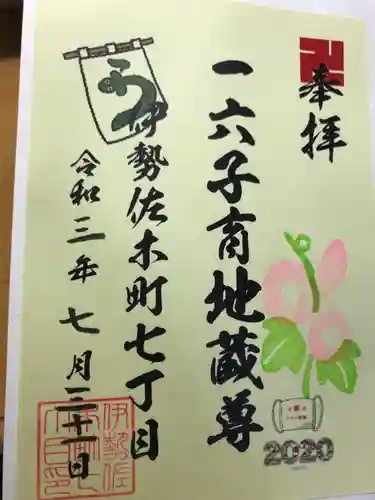 奉拝
一六子育地蔵尊
伊勢佐木町七丁目
令和三年七月三十一日
2020